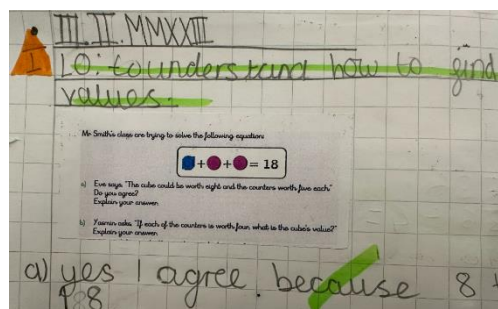 III. II. MMXXIII
LO: to understand how to find
values.
Mr Smith's class are trying to solve the following equation:
+ + = 18
a) Eve says, "The cube could be worth eight and the counters worth five each."
Do you agree?
Explain your answer.
b) Yasmin asks, "If each of the counters is worth four, what is the cube's value?"
Explain your answer.
a) yes I agree. because 8 +